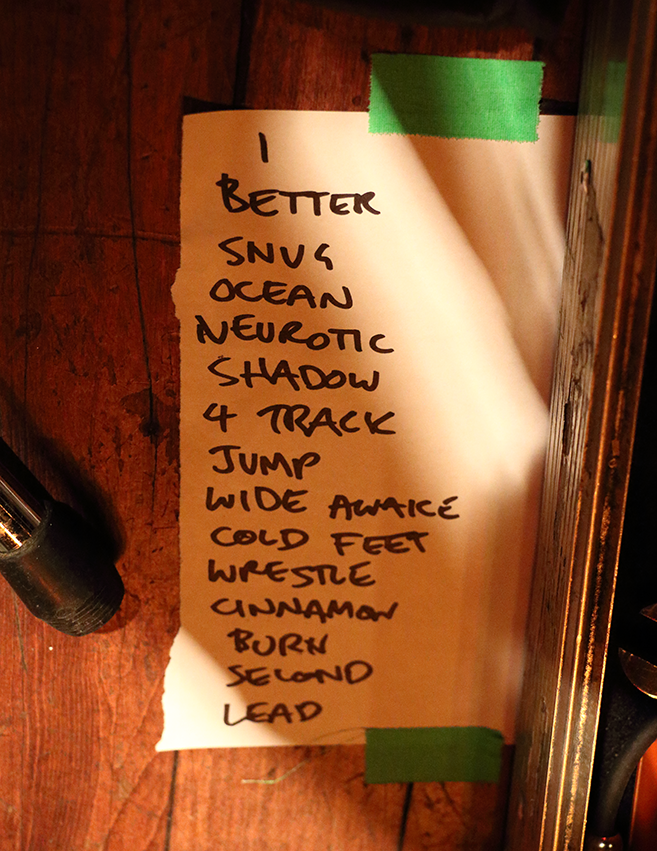 1
BETTER
SNUG
OCEAN
NEUROTIC
SHADOW
4 TRACK
JUMP
WIDE AWAKE
COLD FEET
WRESTLE
CINNAMON
BURN
SECOND
LEAD